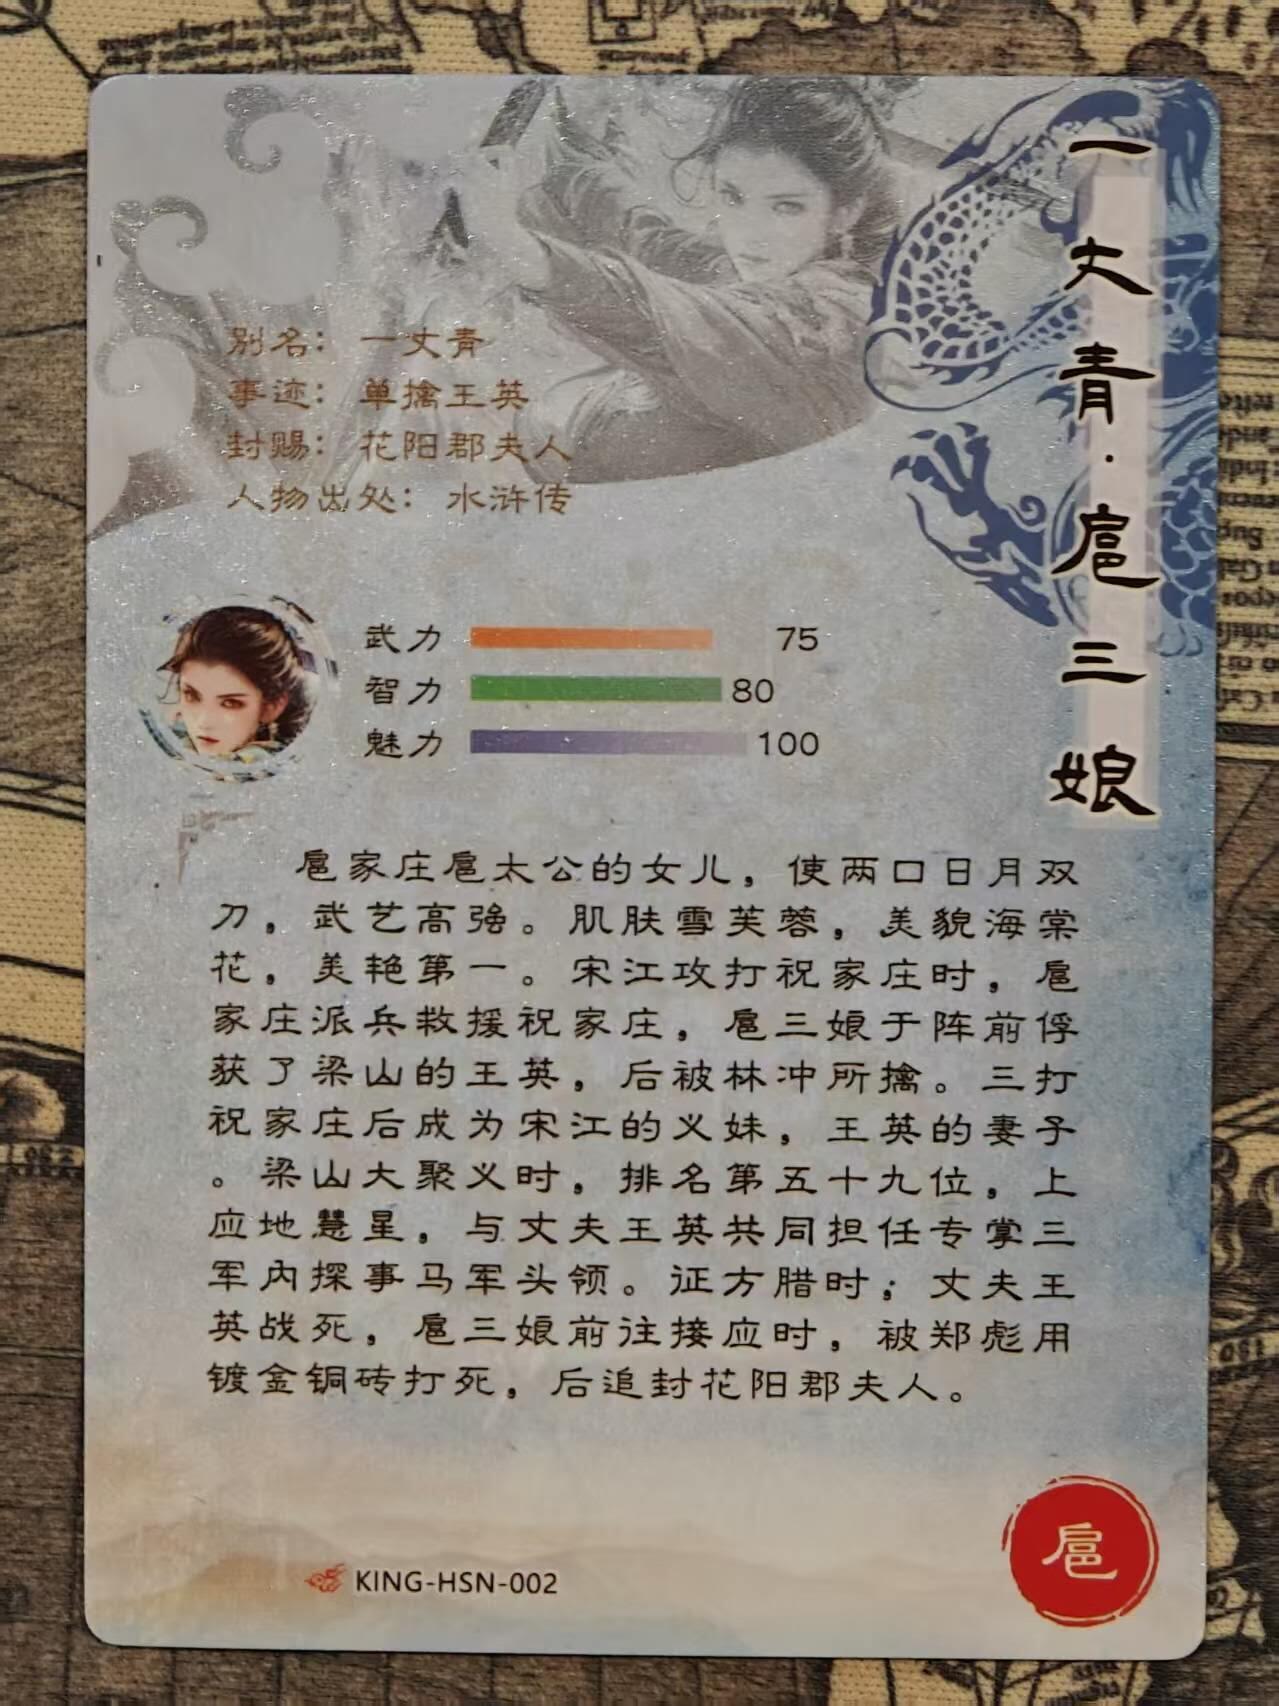 一丈青·扈三娘
别名：一丈青
事迹：单擒王英
封赐：花阳郡夫人
人物出处：水浒传
武力 75
智力 80
魅力 100
扈家庄扈太公的女儿，使两口日月双
刀，武艺高强。肌肤雪芙蓉，美貌海棠
花，美艳第一。宋江攻打祝家庄时，扈
家庄派兵救援祝家庄，扈三娘于阵前俘
获了梁山的王英，后被林冲所擒。三打
祝家庄后成为宋江的义妹，王英的妻子
。梁山大聚义时，排名第五十九位，上
应地慧星，与丈夫王英共同担任专掌三
军内探事马军头领。征方腊时；丈夫王
英战死，扈三娘前往接应时，被郑彪用
镀金铜砖打死，后追封花阳郡夫人。
KING-HSN-002
扈